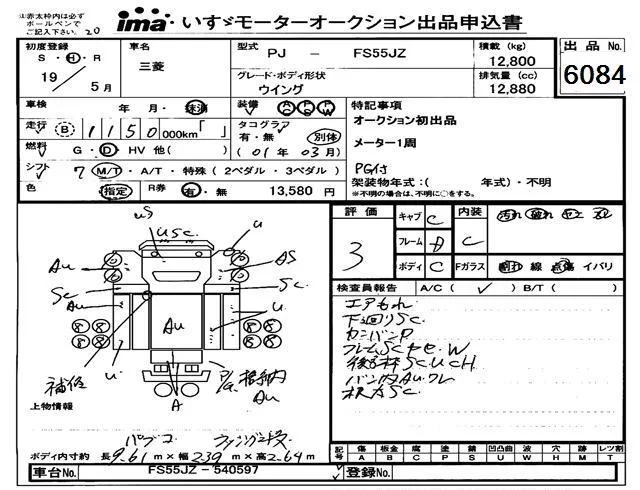 注)赤太枠内は必ず
ボールペンで
ご記入下さい。 20
ima いすゞモーターオークション出品申込書
初度登録 S・H・R 19 / 5月
車名 三菱
型式 PJ - FS55JZ
グレード・ボディ形状 ウイング
積載 (kg) 12,800
排気量 (cc) 12,880
出品 No. 6084
車検 年 月・抹消
装備 AC PS PW
走行 B 1150,000km「 」
タコグラフ 有・無 別体
(01年 03月)
燃料 G・D・HV 他( )
シフト 7 M/T・A/T・特殊(2ペダル・3ペダル)
色 指定 R券 有・無 13,580 円
特記事項
オークション初出品
メーター1周
PG付
架装物年式:( 年式)・不明
※不明の場合は、不明に○をする。
US
u
USC
Au
AS
SC
SC
Au
u
Au
u
8 8 8 8
8 8 8 8
補修
P/G 格納
Au
A
上物情報
パブコ ウィング3段
ボディ内寸約 長9.61m×幅2.39m×高2.64m
評価 3
キャブ C
内装 C
汚れ 破れ
フレーム D
ボディ C
Fガラス 割れ 線 点傷 イバリ
検査員報告 A/C( ✓ ) B/T( )
エアもれ
下廻りSC.
カンバンP
フレームSCサビ.W
後枠SC.UCH
バン内Au.ワレ
根太SC.
記号 傷 板金 腐 塗 錆 凹凸曲 波 穴 欠 レツ割
A B C P S U W H M T
車台No. FS55JZ - 540597
登録No.